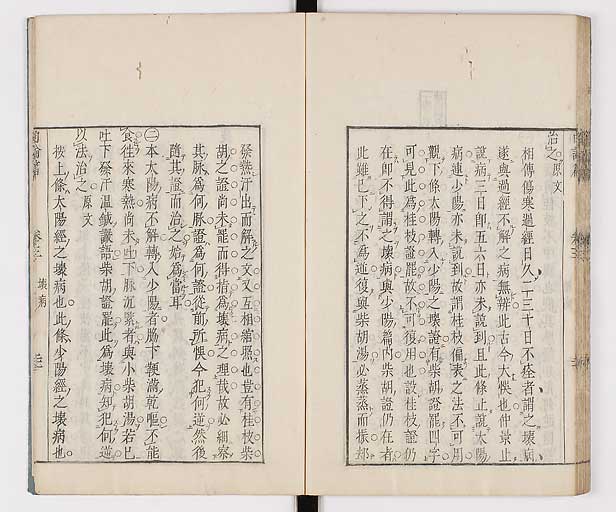 治之原文
相傳傷寒過經日久二十三十日不痊者謂之壞病
遂與過經不解之病無辨此古今大悞也仲景止
說病三日卽五六日亦未說到且此條止說太陽
病連少陽亦未說到故謂桂枝偏表之法不可用
觀下條太陽轉入少陽之壞證有柴胡證罷四字
可見此爲桂枝證罷故不可復用也設桂枝證仍
在卽不得謂之壞病與少陽篇內柴胡證仍在者
此雖已下之不爲逆復與柴胡湯必蒸蒸而振却
發熱汗出而解之文又互相𦂶照也豈有桂枝柴
胡之證尚未罷而得指爲壞病之理哉故必細察
其脈爲何脈證爲何證從前所悞今犯何逆然後
隨其證而治之始爲當耳
㊁本太陽病不解轉入少陽者脇下鞕滿乾嘔不能
食往來寒熱尚未吐下脈沉緊者與小柴胡湯若已
吐下發汗溫鍼讝語柴胡證罷此爲壞病知犯何逆
以法治之原文
按上條太陽經之壞病也此條少陽經之壞病也
卷三
壞病